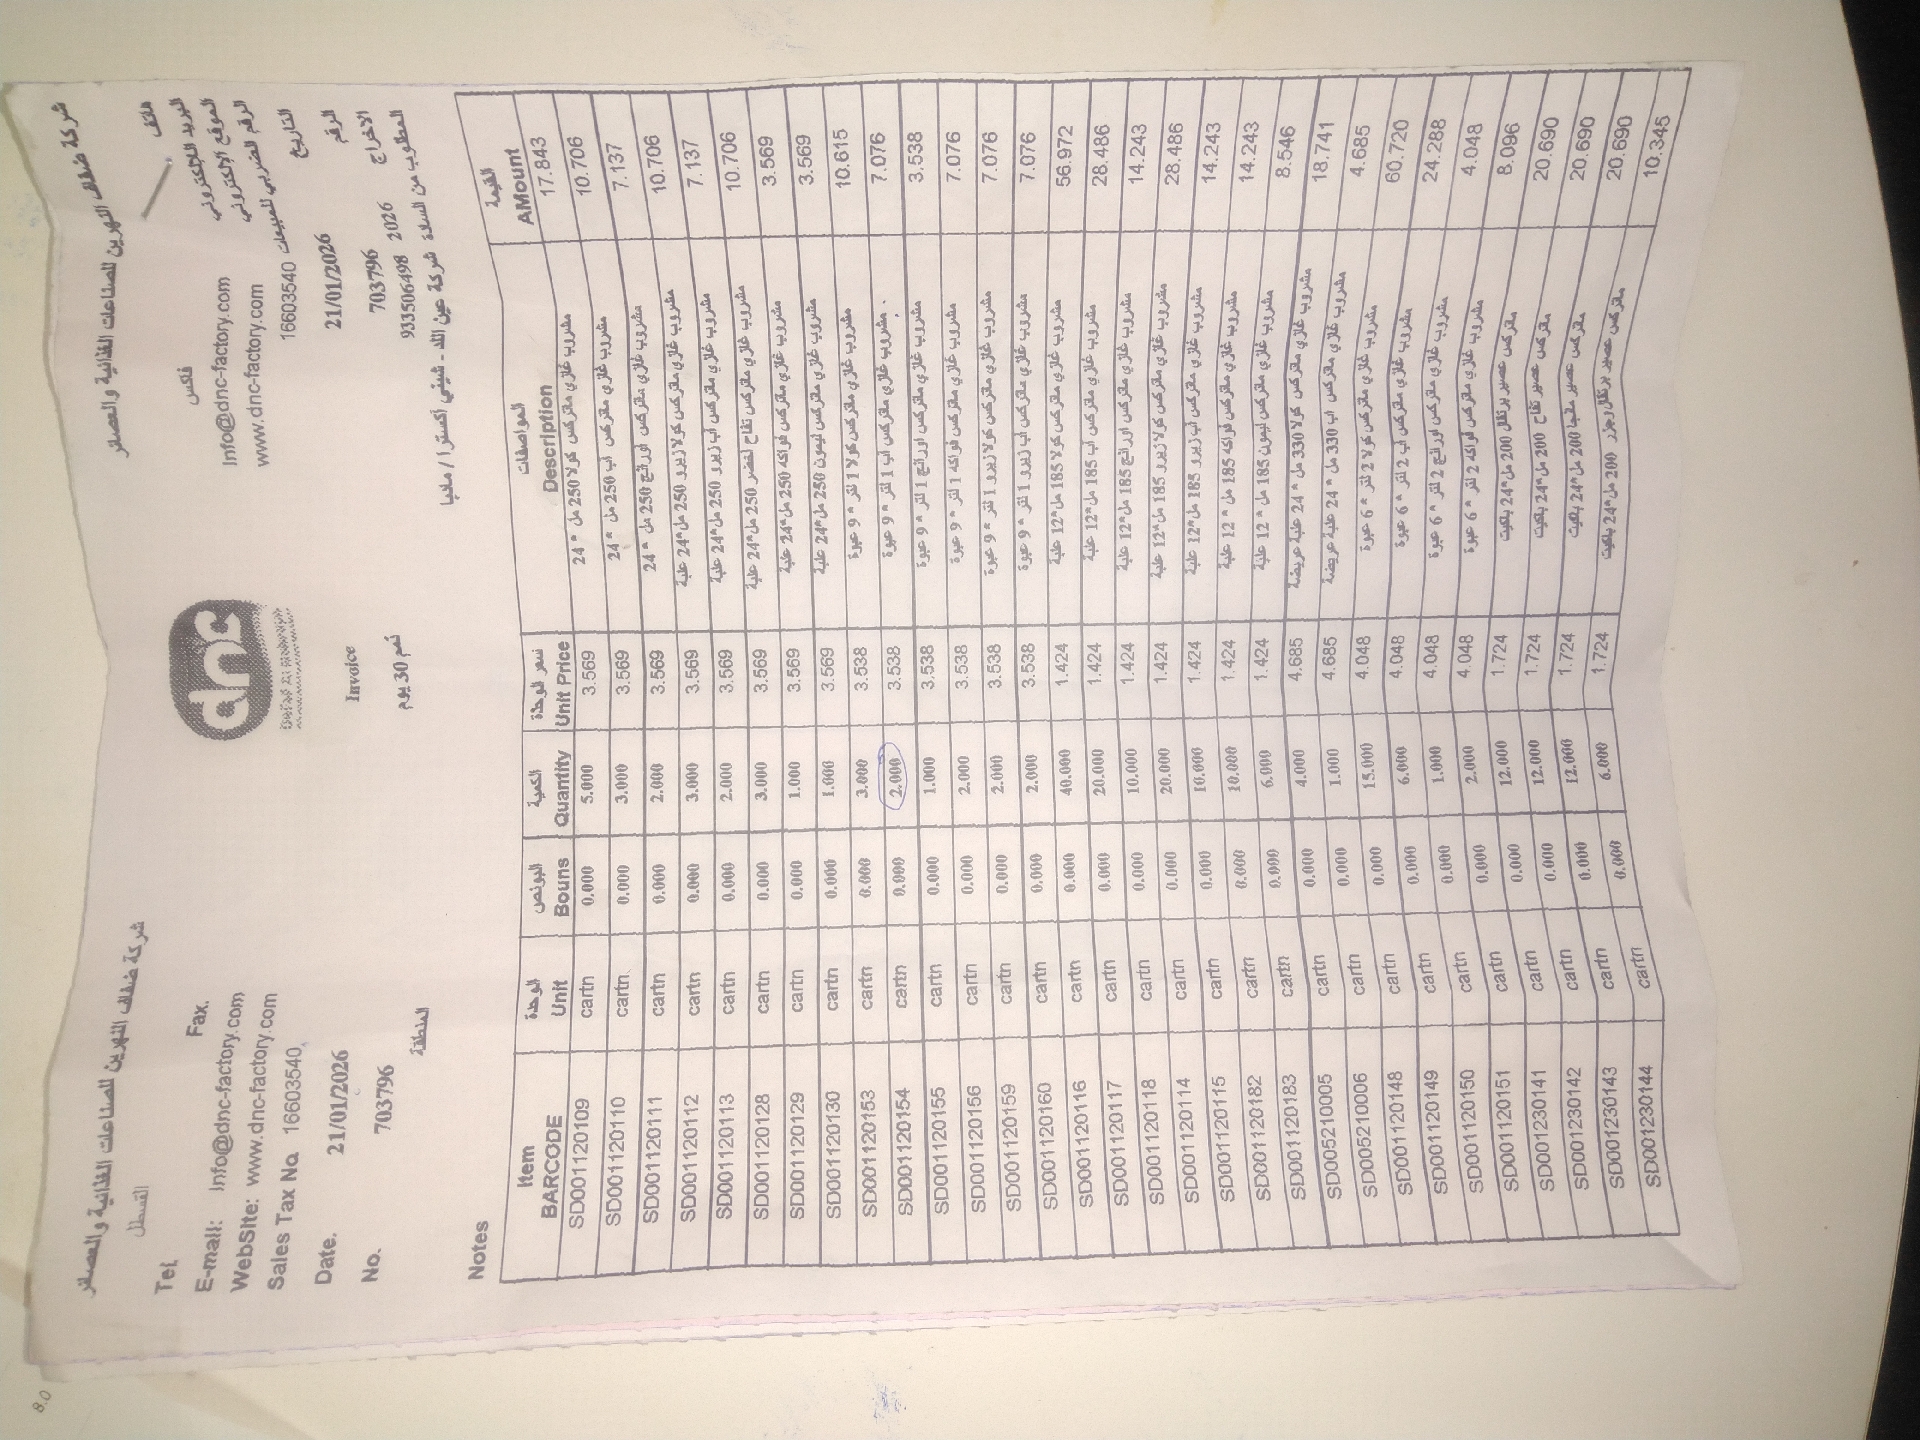 شركة ضفاف النهرين للصناعات الغذائية والعصائر شركة ضفاف النهرين للصناعات الغذائية والعصائر
القسطل
Tel. Fax. فاكس هاتف
E-mail: Info@dnc-factory.com Info@dnc-factory.com البريد الالكتروني
WebSite: www.dnc-factory.com www.dnc-factory.com الموقع الالكتروني
Sales Tax No. 16603540 16603540 الرقم الضريبي للمبيعات
dnc
Date. 21/01/2026 Invoice 21/01/2026 التاريخ
No. 703796 703796 الرقم
ذمم 30 يوم 933506498 2026 الاخراج
المنطقة المطلوب من السادة شركة عين الله - شيني اكسترا / مادبا
Notes
Item BARCODE الوحدة Unit البونص Bouns الكمية Quantity سعر الوحدة Unit Price المواصفات Description القيمة AMount
SD001120109 cartn 0.000 5.000 3.569 مشروب غازي مفركس كولا 250 مل * 24 17.843
SD001120110 cartn 0.000 3.000 3.569 مشروب غازي مفركس اب 250 مل * 24 10.706
SD001120111 cartn 0.000 2.000 3.569 مشروب غازي مفركس اورانج 250 مل * 24 7.137
SD001120112 cartn 0.000 3.000 3.569 مشروب غازي مفركس كولا زيرو 250 مل*24 علبة 10.706
SD001120113 cartn 0.000 2.000 3.569 مشروب غازي مفركس اب زيرو 250 مل*24 علبة 7.137
SD001120128 cartn 0.000 3.000 3.569 مشروب غازي مفركس تفاح اخضر 250 مل*24 علبة 10.706
SD001120129 cartn 0.000 1.000 3.569 مشروب غازي مفركس فواكه 250 مل*24 علبة 3.569
SD001120130 cartn 0.000 1.000 3.569 مشروب غازي مفركس ليمون 250 مل*24 علبة 3.569
SD001120153 cartn 0.000 3.000 3.538 مشروب غازي مفركس كولا 1 لتر * 9 عبوة 10.615
SD001120154 cartn 0.000 2.000 3.538 مشروب غازي مفركس اب 1 لتر * 9 عبوة 7.076
SD001120155 cartn 0.000 1.000 3.538 مشروب غازي مفركس اورانج 1 لتر * 9 عبوة 3.538
SD001120156 cartn 0.000 2.000 3.538 مشروب غازي مفركس فواكه 1 لتر * 9 عبوة 7.076
SD001120159 cartn 0.000 2.000 3.538 مشروب غازي مفركس كولا زيرو 1 لتر * 9 عبوة 7.076
SD001120160 cartn 0.000 2.000 3.538 مشروب غازي مفركس اب زيرو 1 لتر * 9 عبوة 7.076
SD001120116 cartn 0.000 40.000 1.424 مشروب غازي مفركس كولا 185 مل*12 علبة 56.972
SD001120117 cartn 0.000 20.000 1.424 مشروب غازي مفركس اب 185 مل*12 علبة 28.486
SD001120118 cartn 0.000 10.000 1.424 مشروب غازي مفركس اورانج 185 مل*12 علبة 14.243
SD001120114 cartn 0.000 20.000 1.424 مشروب غازي مفركس كولا زيرو 185 مل*12 علبة 28.486
SD001120115 cartn 0.000 10.000 1.424 مشروب غازي مفركس اب زيرو 185 مل*12 علبة 14.243
SD001120182 cartn 0.000 10.000 1.424 مشروب غازي مفركس فواكه 185 مل * 12 علبة 14.243
SD001120183 cartn 0.000 6.000 1.424 مشروب غازي مفركس ليمون 185 مل * 12 علبة 8.546
SD005210005 cartn 0.000 4.000 4.685 مشروب غازي مفركس كولا 330 مل * 24 علبة عريضة 18.741
SD005210006 cartn 0.000 1.000 4.685 مشروب غازي مفركس اب 330 مل * 24 علبة عريضة 4.685
SD001120148 cartn 0.000 15.000 4.048 مشروب غازي مفركس كولا 2 لتر * 6 عبوة 60.720
SD001120149 cartn 0.000 6.000 4.048 مشروب غازي مفركس اب 2 لتر * 6 عبوة 24.288
SD001120150 cartn 0.000 1.000 4.048 مشروب غازي مفركس اورانج 2 لتر * 6 عبوة 4.048
SD001120151 cartn 0.000 2.000 4.048 مشروب غازي مفركس فواكه 2 لتر * 6 عبوة 8.096
SD001230141 cartn 0.000 12.000 1.724 مفركس عصير برتقال 200 مل*24 باكيت 20.690
SD001230142 cartn 0.000 12.000 1.724 مفركس عصير تفاح 200 مل*24 باكيت 20.690
SD001230143 cartn 0.000 12.000 1.724 مفركس عصير منجا 200 مل*24 باكيت 20.690
SD001230144 cartn 0.000 6.000 1.724 مفركس عصير برتقال وجزر 200 مل*24 باكيت 10.345